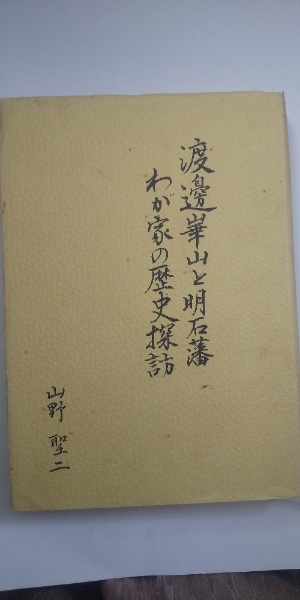 渡邊崋山と明石藩
わが家の歴史探訪
山野 聖二